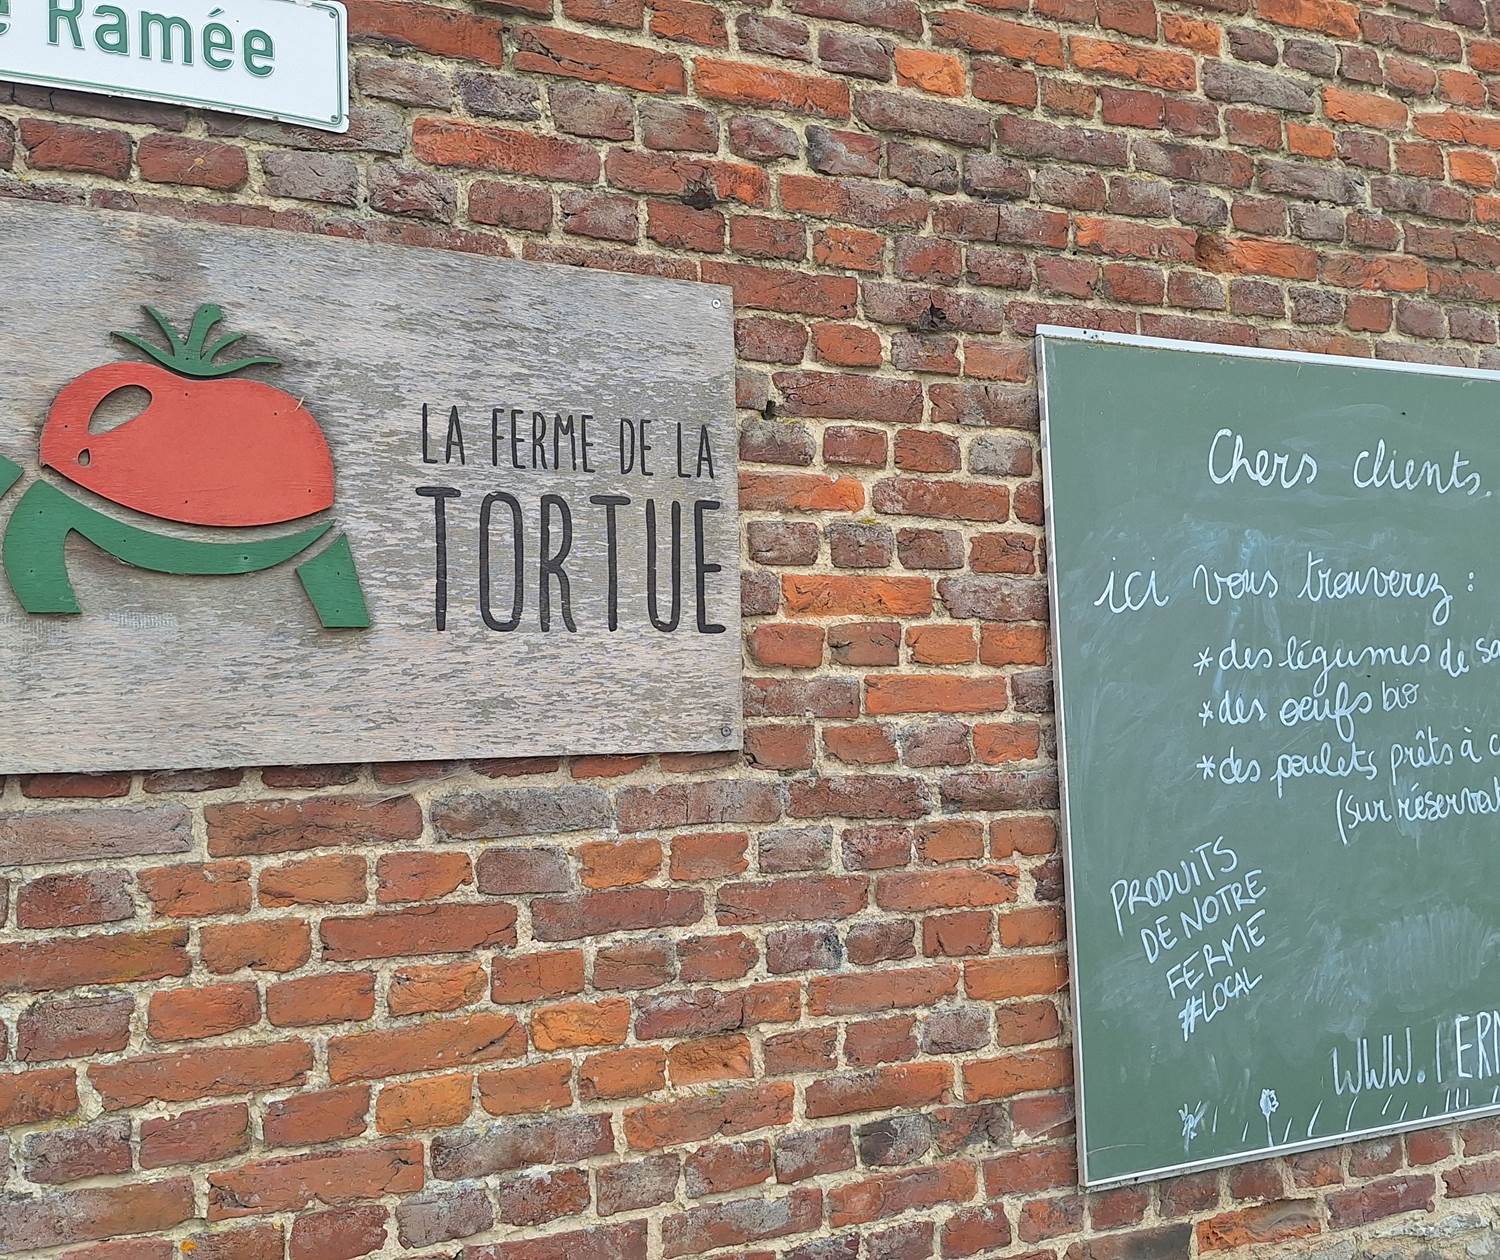 Ramée
LA FERME DE LA
TORTUE
Chers clients,
ici vous trouverez :
* des légumes de
* des oeufs bio
* des poulets prêts à
(sur
PRODUITS
DE NOTRE
FERME
#LOCAL